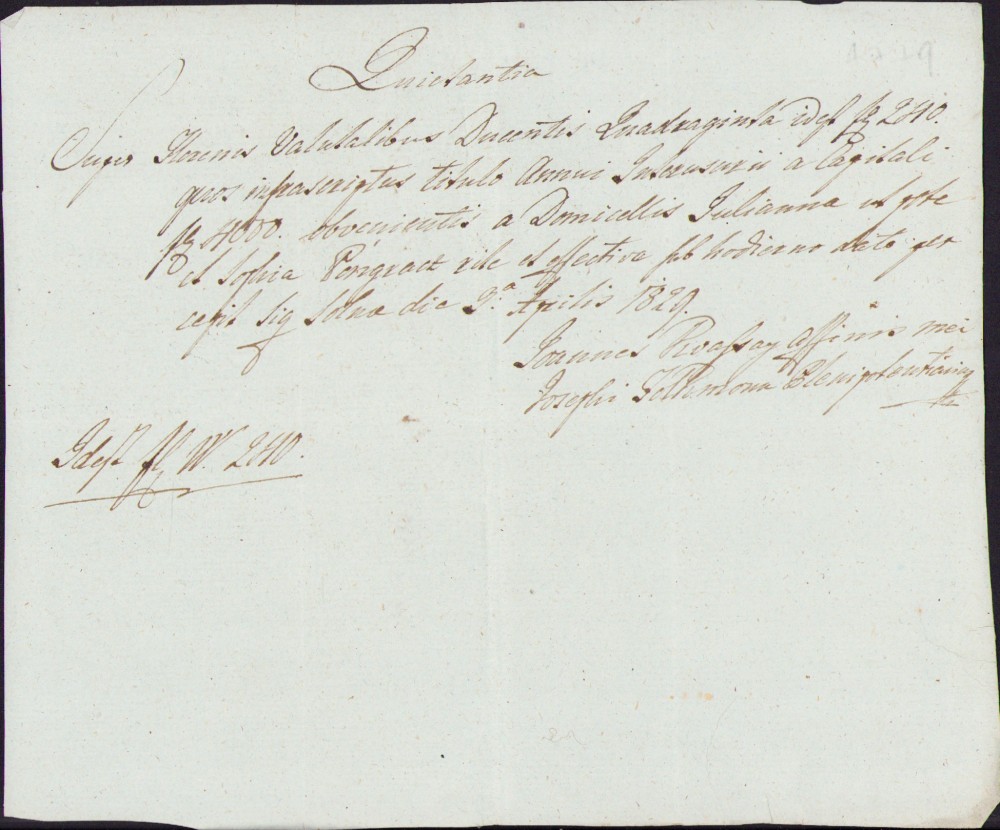 Quietantia
Super Florenis Valutalibus Ducentis Quadraginta idest fl 240.
quos infrascriptus titulo Annui Interusurii a Capitali
fl 4000. obvenientis a Domicellis Julianna
et Sophia rite et effective sub hodierno dato per
cepit Sig die 9.a Aprilis 1829.
Joannes affinis mei
Josephi Plenipotentiarius
Idest fl W. 240.
1829